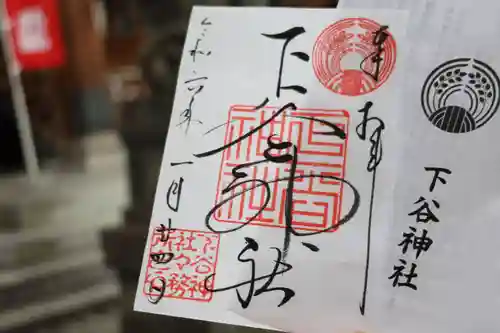 奉拝
下谷神社
下谷神社
令和六年一月廿四日
下谷神社